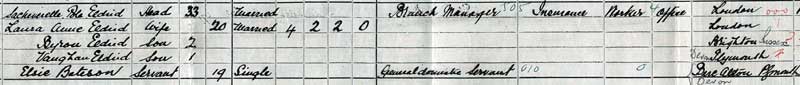 Sackerville Pole Eldrid Head 33 Married Branch Manager 505 Insurance Worker Office London 000
Laura Anne Eldrid Wife 20 Married 4 2 2 0 London
Byron Eldrid Son 2 Brighton Sussex
Vaughan Eldrid Son 1 Devon Plymouth
Elsie Bateson Servant 19 Single General domestic Servant 010 0 Plymouth Devon